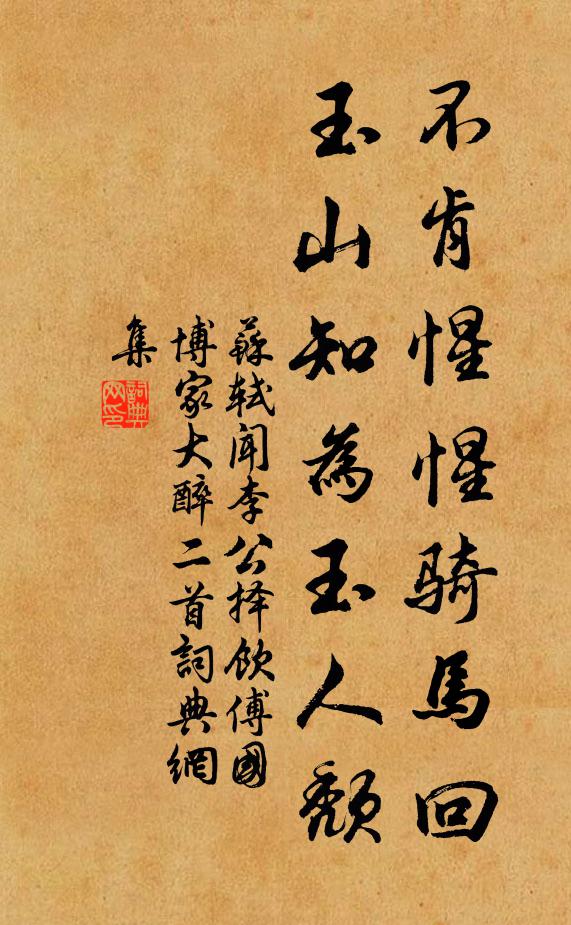 不肯惺惺骑馬回
玉山知為玉人頹
蘇軾聞李公择飲傅國
博家大醉二首詞典網
集
詞典
网印